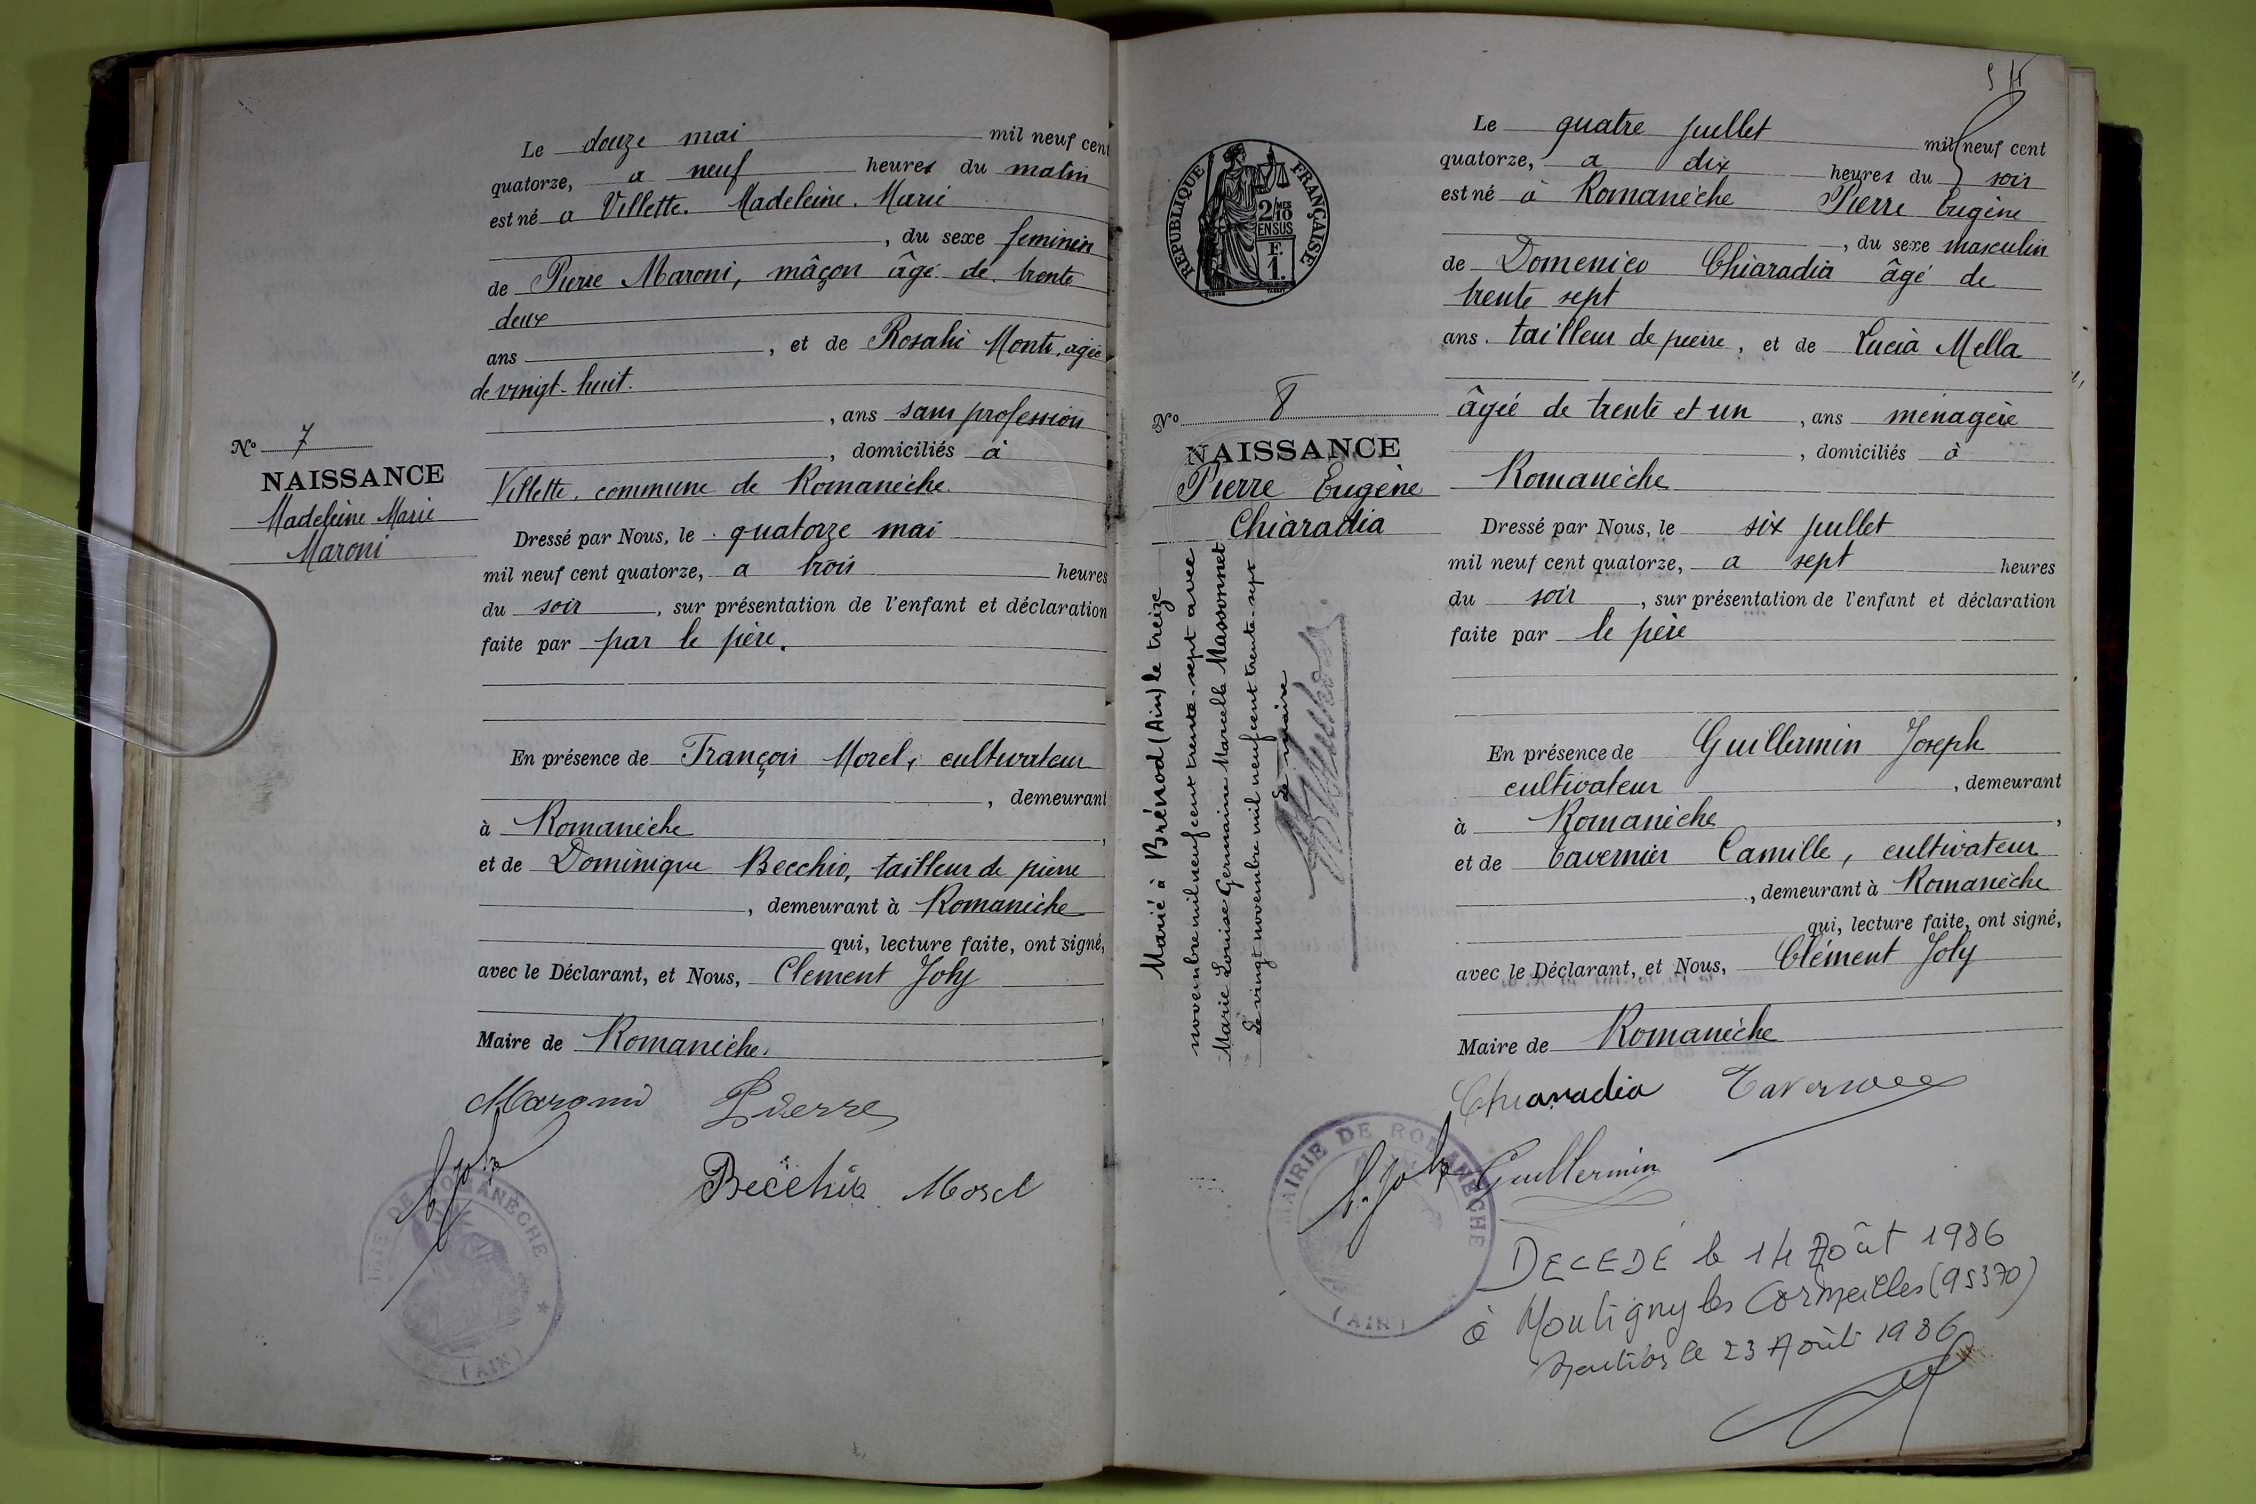 Le douze mai mil neuf cent
quatorze, a neuf heures du matin
est né a Villette. Madeleine. Marie
, du sexe feminin
de Pierre Maroni, mâçon âgé de trente
deux
ans , et de Rosalie Monti, agée
de vingt-huit.
, ans sans profession
, domiciliés à
Villette, commune de Romanèche.
N° 7
NAISSANCE
Madeleine Marie
Maroni
Dressé par Nous, le quatorze mai
mil neuf cent quatorze, a trois heures
du soir , sur présentation de l'enfant et déclaration
faite par par le père.
En présence de François Morel, cultivateur
, demeurant
à Romanèche ,
et de Dominique Becchio, tailleur de pierre
, demeurant à Romanèche
qui, lecture faite, ont signé,
avec le Déclarant, et Nous, Clement Joly
Maire de Romanèche.
Maroni Pierre
C. Joly
Becchio Morel
MAIRIE DE ROMANÈCHE
(AIN)
54
RÉPUBLIQUE FRANÇAISE
2/10MES
EN SUS
F.
1.
Le quatre juillet mil neuf cent
quatorze, a dix heures du soir
est né à Romanèche Pierre Eugène
, du sexe masculin
de Domenico Chiaradia âgé de
trente sept
ans. tailleur de pierre, et de Lucia Mella
âgée de trente et un , ans ménagère
, domiciliés à
Romanèche
N° 8
NAISSANCE
Pierre Eugène
Chiaradia
Marié à Brénod (Ain) le treize
novembre mil neuf cent trente-sept avec
Marie Louise Germaine Marcelle Massonnet
Le vingt novembre mil neuf cent trente-sept
Le maire
Dressé par Nous, le six juillet
mil neuf cent quatorze, a sept heures
du soir , sur présentation de l'enfant et déclaration
faite par le père
En présence de Guillermin Joseph
cultivateur , demeurant
à Romanèche ,
et de Tavernier Camille, cultivateur
, demeurant à Romanèche
qui, lecture faite, ont signé,
avec le Déclarant, et Nous, Clément Joly
Maire de Romanèche
Chiaradia Tavernier
C. Joly Guillermin
MAIRIE DE ROMANÈCHE
(AIN)
DECEDÉ le 14 Août 1986
à Montigny les Cormeilles (95370)
Mention le 23 Août 1986